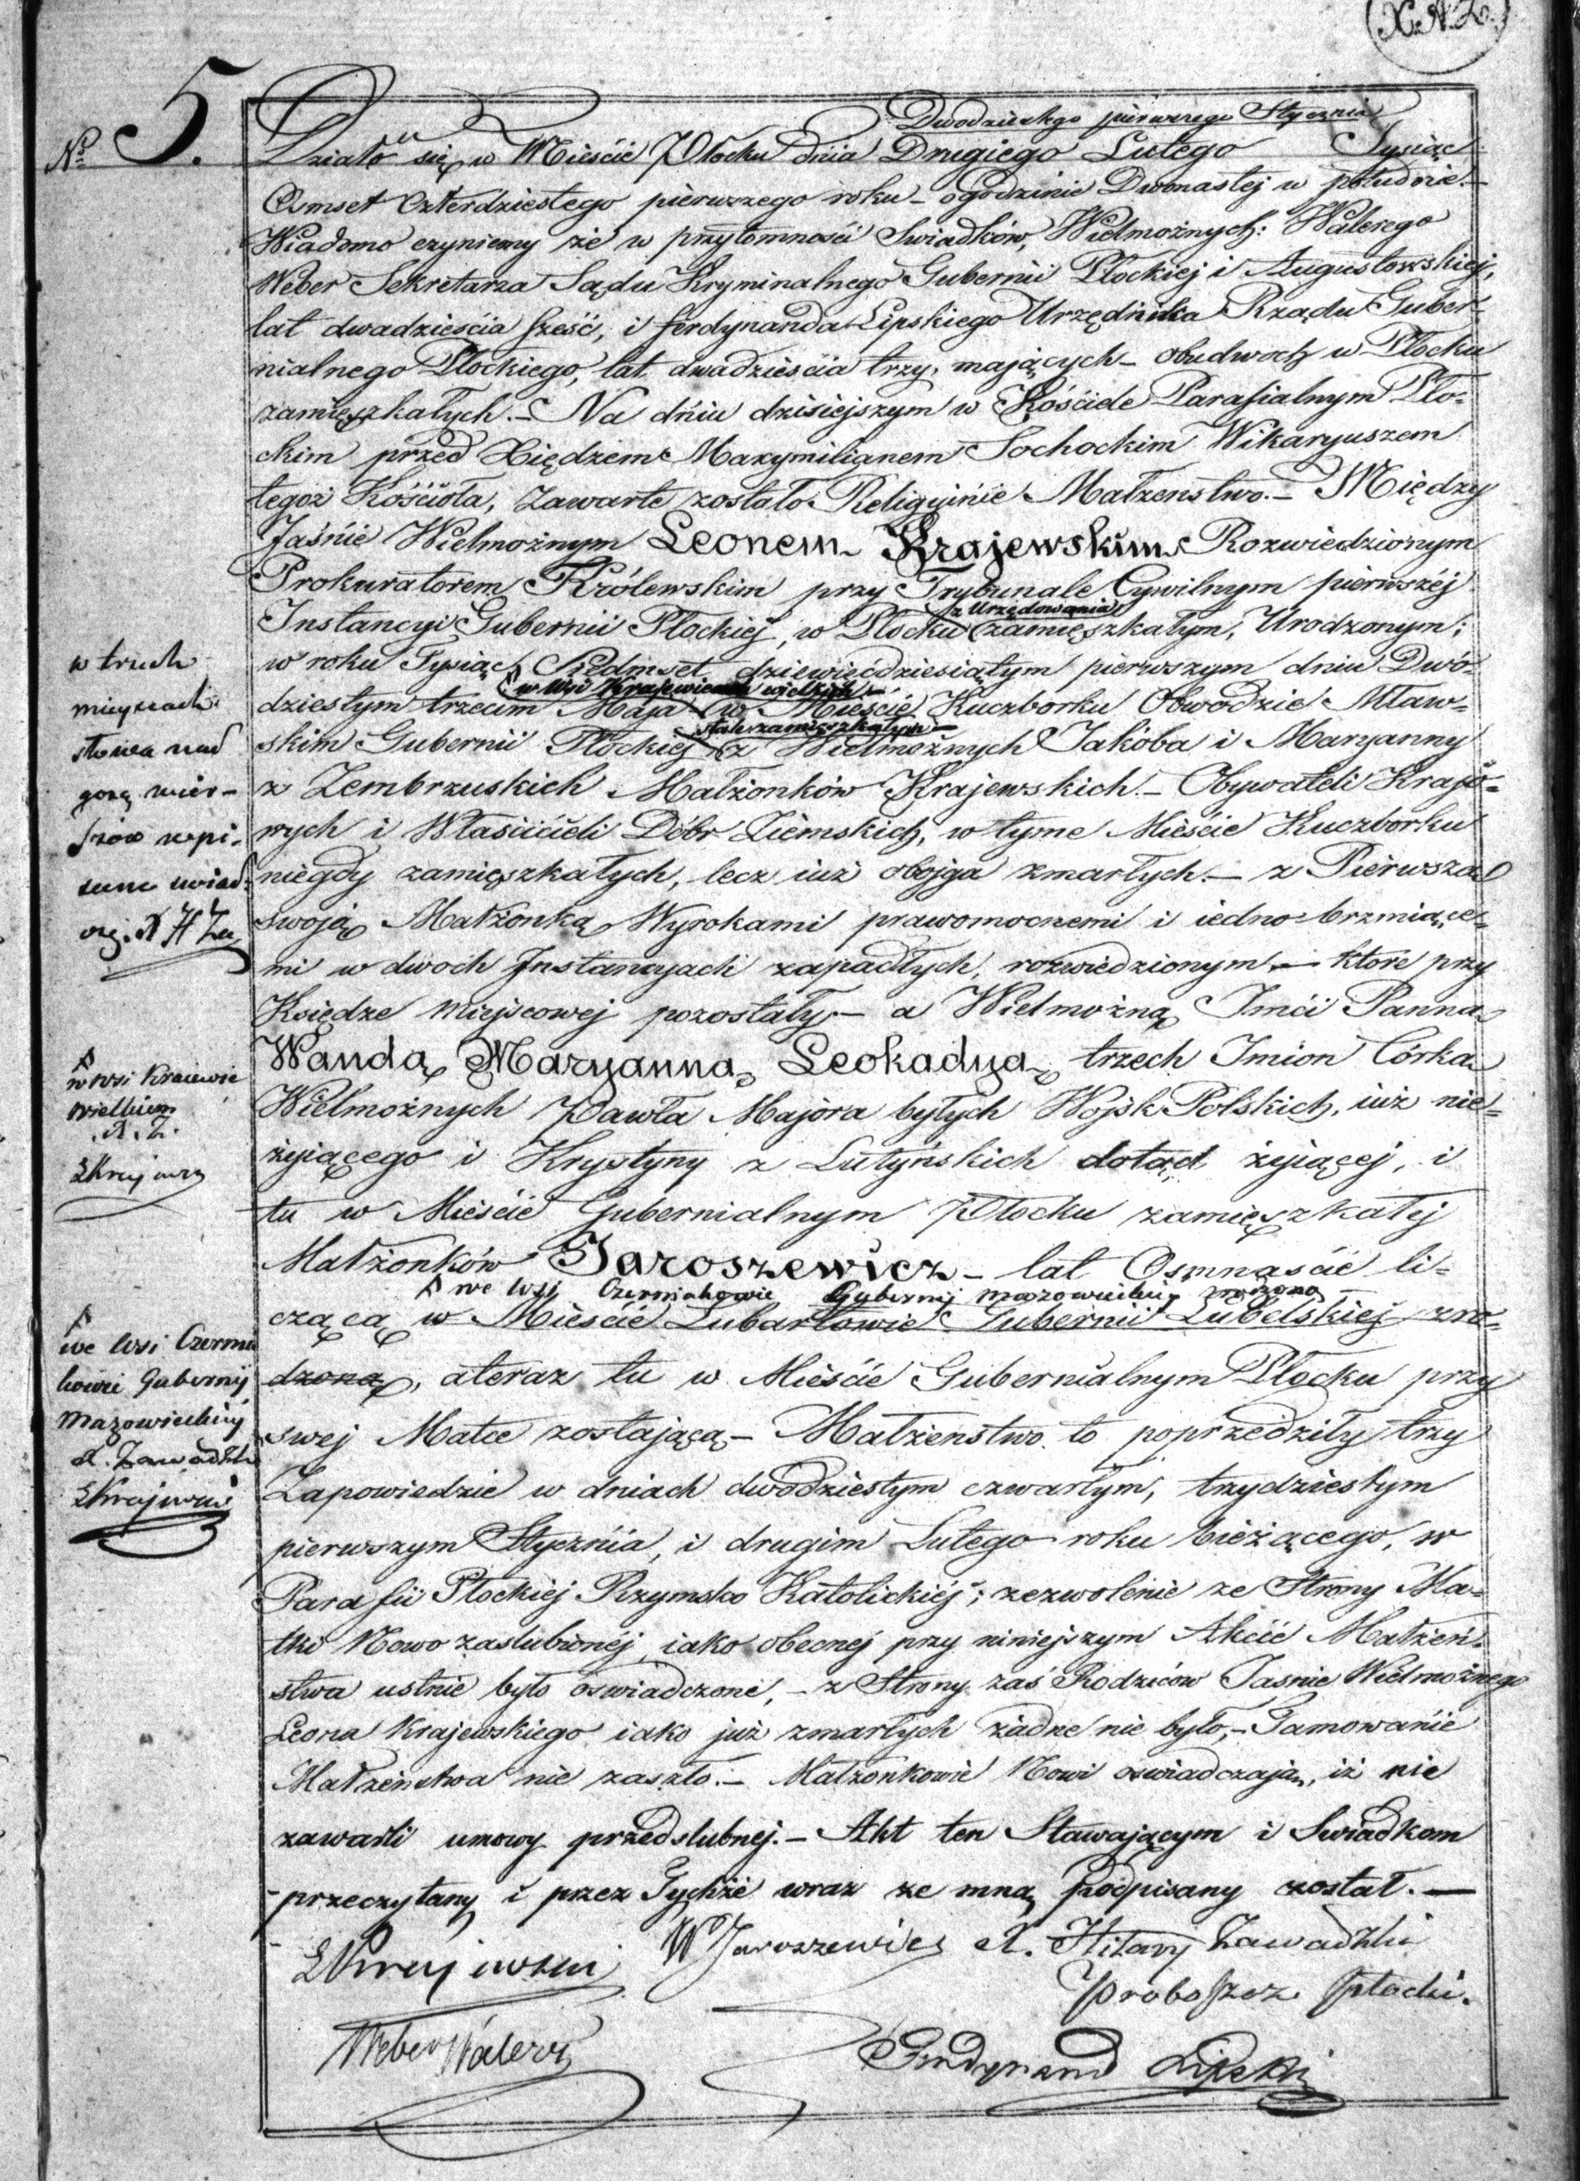 X.A.Z.
Nº 5.
Dwodziestego pierwszego Stycznia
Działo się w Mieście Płocku dnia Drugiego Lutego Tysiąc
Osmset czterdziestego pierwszego roku – o godzinie Dwonastej w południe –
Wiadomo czyniemy że w przytomności Swiadków, Wielmożnych: Walerego
Weber Sekretarza Sądu Kryminalnego Gubernii Płockiej i Augustowskiej,
lat dwadzieścia sześć, i Ferdynanda Lipskiego Urzędnika Rządu Guber-
nialnego Płockiego, lat dwadzieścia trzy, mających – obudwoch w Płocku
zamięszkałych. – Na dniu dzisiejszym w Kościele Parafialnym Pło-
ckim przed Xiędzem Maxymilianem Sochockim Wikaryuszem
tegoż Kościoła, zawarte zostało Religijnie Małżenstwo. – Między
Jaśnie Wielmożnym Leonem Krajewskim Rozwiedzionym
Prokuratorem Królewskim przy Trybunale Cywilnym pierwszéj
z Urzędowania
Instancyi Gubernii Płockiej, w Płocku zamięszkałym, Urodzonym;
w roku Tysiąc Siedmset dziewięćdziesiątym pierwszym dniu Dwó-
w Wsi Krajewie wielkich
dziestym trzecim Maja – w Mieście Kuczborku Obwodzie Mław-
stale zamięszkałym
skim Gubernii Płockiej z Wielmożnych Jakóba i Maryanny
z Zembrzuskich Małżonków Krajewskich. – Obywateli Krajo-
wych i Właścicieli Dóbr Ziemskich, w tyme Mieście Kuczborku
niegdy zamięszkałych, lecz iuż obojga zmarłych. – z Pierwszą
swoją Małżonką Wyrokami prawomocnemi i iedno-brzmiące-
mi w dwoch Instancyach zapadłych, rozwiedzionym – ktore przy
Księdze miejscowej pozostały – a Wielmożną Imći Panną
Wandą Maryanną Leokadyą trzech Imion Córką
Wielmożnych Pawła Majora byłych Wojsk Polskich, iuż nie-
żyiącego i Krystyny z Lutyńskich dotąd żyiącej, i
tu w Mieście Gubernialnym Płocku zamięszkałej
Małżonków Jaroszewicz – lat Osmnaście li-
we Wsi Czerniakowie Gubernij Mazowieckiej zrodzoną
czącą w Mieście Lubartowie Gubernii Lubelskiej zro-
dzoną, a teraz tu w Mieście Gubernialnym Płocku przy
swej Matce zostającą – Małżenstwo to poprzedziły trzy
Zapowiedzie w dniach dwódziestym czwartym, trzydziestym
pierwszym Stycznia, i drugim Lutego roku bieżącego, w
Parafii Płockiej Rzymsko Katolickiéj; zezwolenie ze Strony Ma-
tki Nowo zaslubionéj, iako obecnej przy niniejszym Akcie Małżeń-
stwa ustnie było oswiadczone, – z Strony zaś Rodziców Jasnie Wielmożnego
Leona Krajewskiego iako już zmarłych żadne nie było, – Tamowanie
Małżeństwa nie zaszło. – Małżonkowie Nowi oswiadczają, iż nie
zawarli umowy przedslubnej. – Akt ten Stawającym i Swiadkom
przeczytany i przez Tychże wraz ze mną podpisany został. –
LKrajewski WJaroszewicz X. Hilary Zawadzki
Proboszcz Płocki.
Weber Walery Ferdynand Lipski
w trzech
mieyscach
słowa nad
gorą wier-
szów wpi-
sane
X H Za
w wsi Krajewie
wielkiem
X. Z.
LKrajews
we Wsi Czernia
kowie Gubernij
Mazowieckiéj
X. Zawadzki
LKrajewski